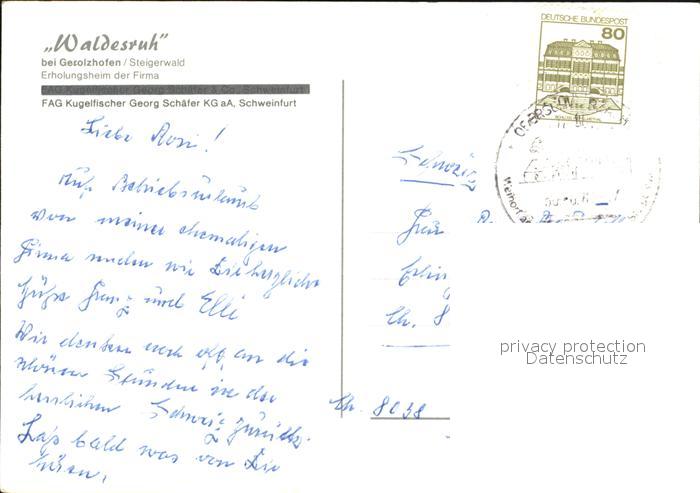 „Waldesruh"
bei Gerolzhofen / Steigerwald
Erholungsheim der Firma
FAG Kugelfischer Georg Schäfer & Co., Schweinfurt
FAG Kugelfischer Georg Schäfer KG aA, Schweinfurt
DEUTSCHE BUNDESPOST
80
Liebe Rosi!
Aus Betriebsurlaub
von meiner ehemaligen
Firma senden wir Dir herzliche
Grüße Franz und Elli
Wir denken noch oft an die
schönen Stunden in der
herrlichen Schweiz zurück.
Lass bald was von Dir
hören.
Schweiz
Frau
Ch. 8
Ch. 8038
privacy protection
Datenschutz